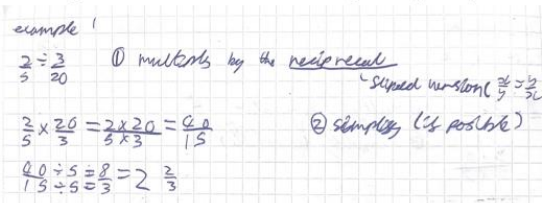 example 1
2/5 ÷ 3/20 ① multiply by the reciprocal
↳ fliped version ( x/y → y/x
2/5 × 20/3 = 2×20/5×3 = 40/15 ② simplify (if posible)
40÷5/15÷5 = 8/3 = 2 2/3